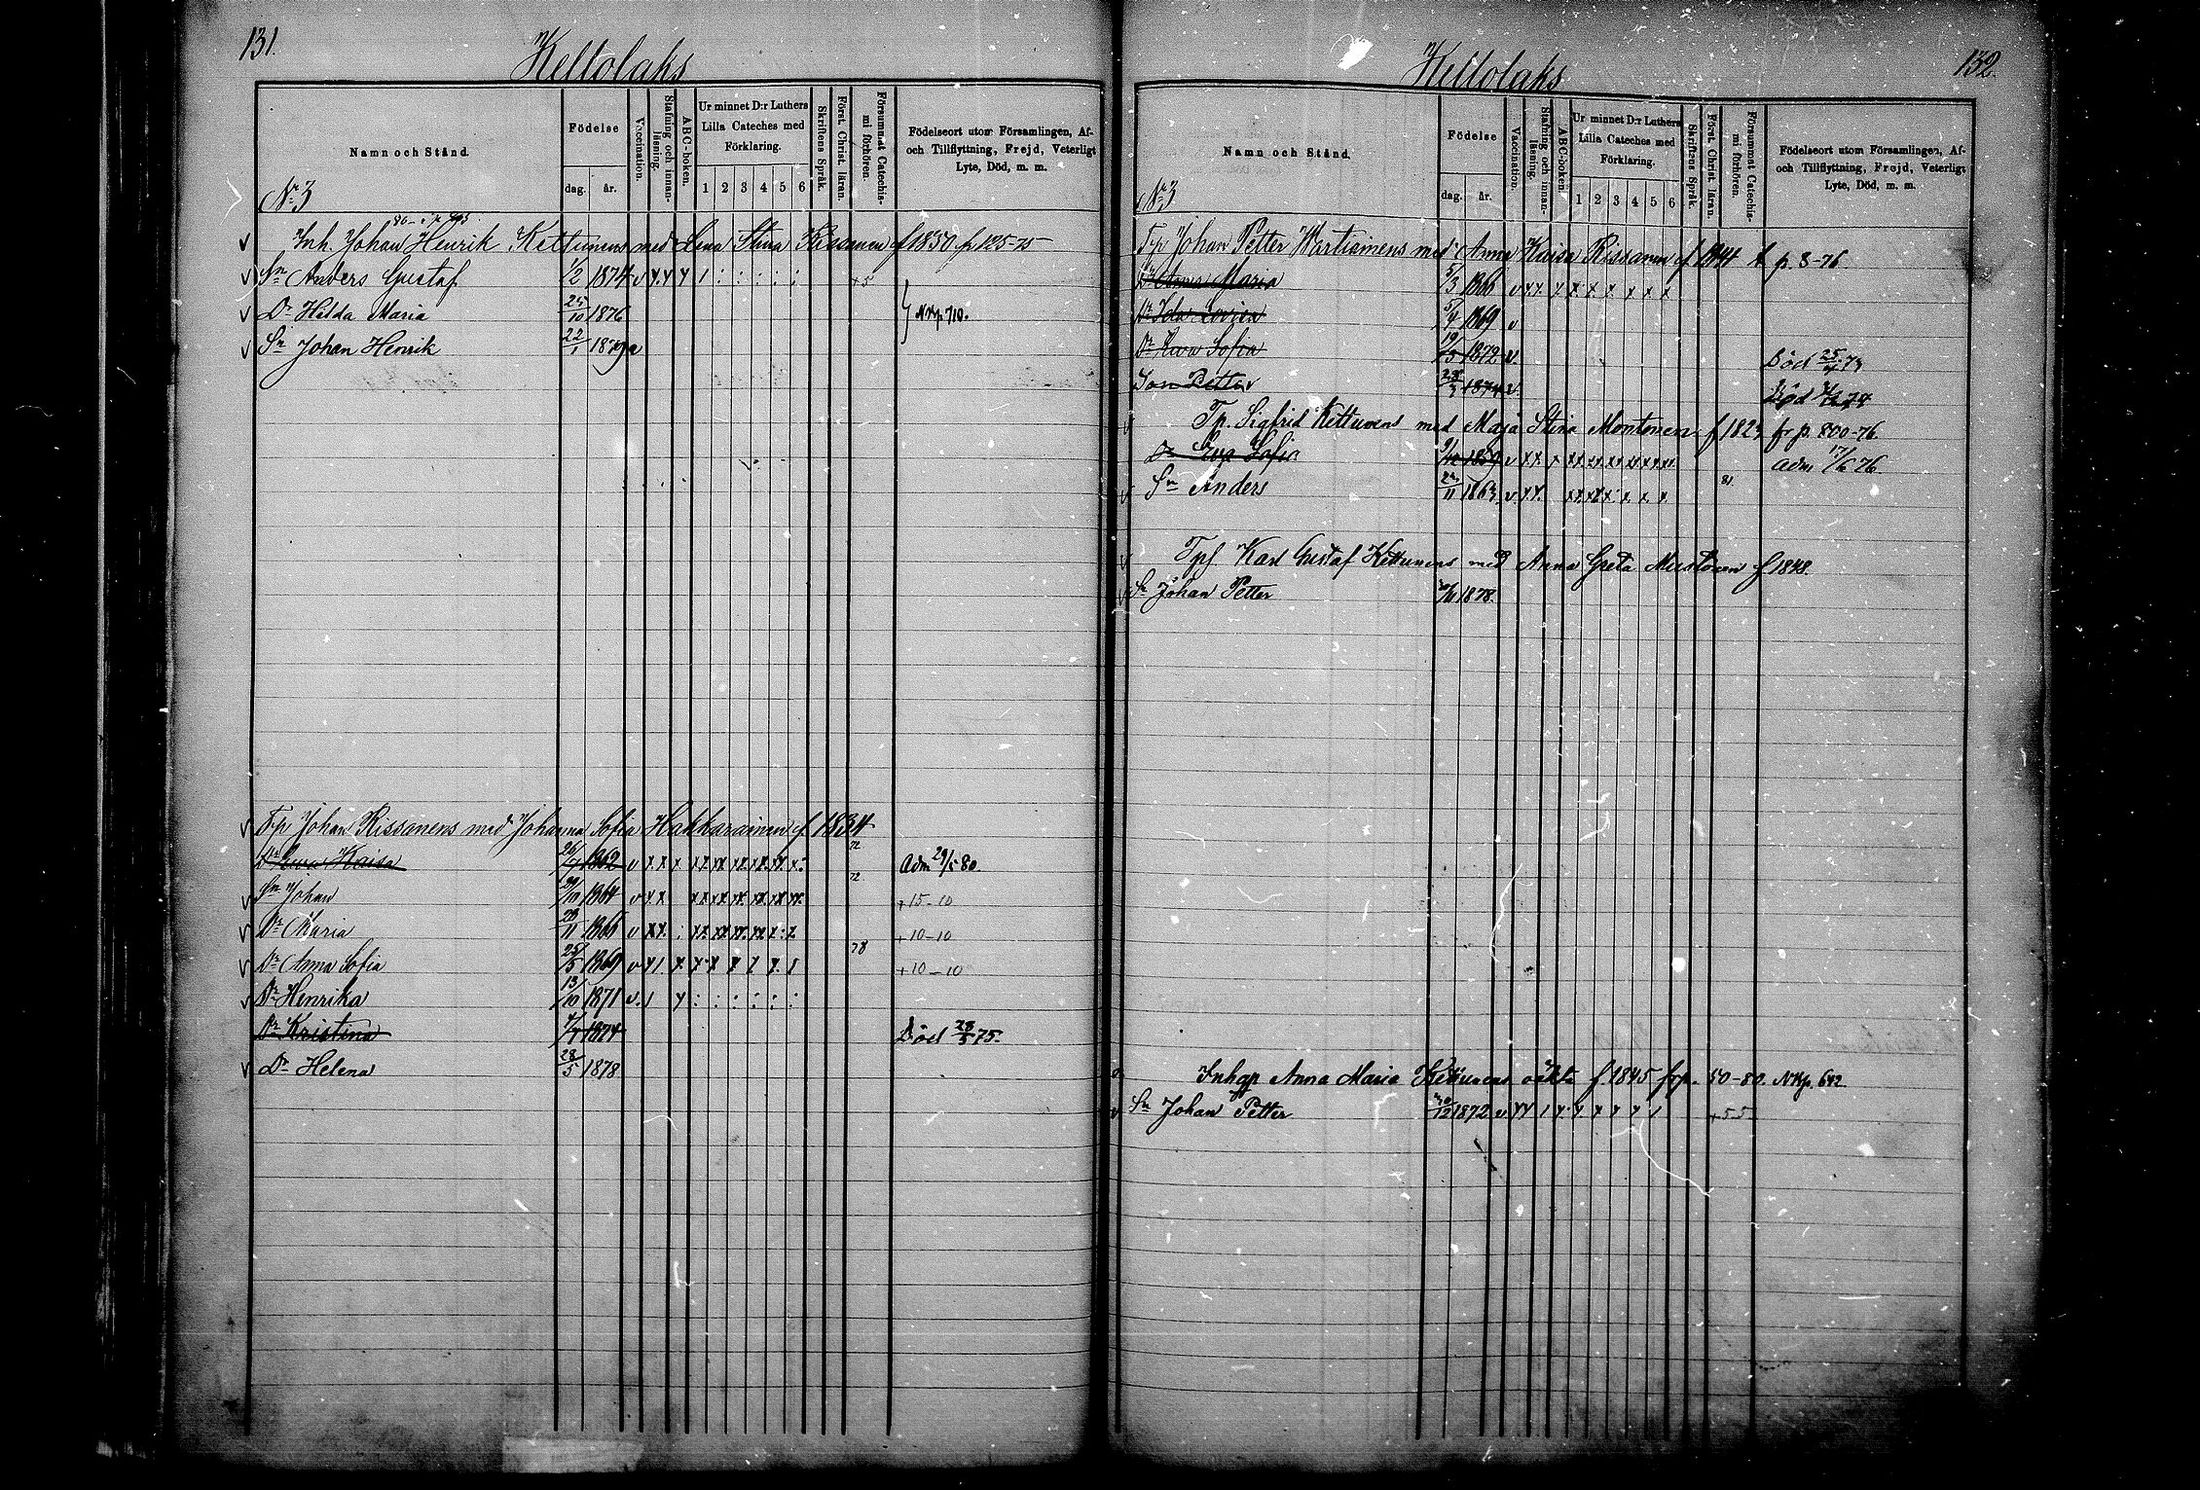 131.
Keltolaks
Namn och Stånd.
Födelse
dag.
år.
Vaccination.
Stafning och innan-
läsning.
ABC-boken.
Ur minnet D:r Luthers
Lilla Cateches med
Förklaring.
1 2 3 4 5 6
Skriftens Språk.
Först. Christ. läran.
Försummat Catechis-
mi förhören.
Födelseort utom Församlingen, Af-
och Tillflyttning, Frejd, Veterligt
Lyte, Död, m. m.
No 3
Inh. Johan Henrik Kettunens med Lena Stina Rissanen f 1850 fr p. 125-75
Sn Anders Gustaf 1/2 1874 v
Dr Hilda Maria 25/10 1876 N Kp 710.
Sn Johan Henrik 22/1 1879
Tp Johan Rissanens med Johanna Sofia Hakkarainen f. 1834
72
Dr Ewa Kaisa 26/4 1862 v x x x Adm 29/5 80.
72
Sn Johan 29/10 1864 v x x + 15-10
Dr Maria 23/11 1866 v x x + 10-10
78
Dr Anna Sofia 25/5 1869 v + 10-10
Dr Henrika 13/10 1871 v
Dr Kristina 1874 Död 28/3 75.
Dr Helena 28/5 1878
132.
Keltolaks
Namn och Stånd.
Födelse
dag.
år.
Vaccination.
Stafning och innan-
läsning.
ABC-boken.
Ur minnet D:r Luthers
Lilla Cateches med
Förklaring.
1 2 3 4 5 6
Skriftens Språk.
Först. Christ. läran.
Försummat Catechis-
mi förhören.
Födelseort utom Församlingen, Af-
och Tillflyttning, Frejd, Veterligt
Lyte, Död, m. m.
No 3
Tp Johan Petter Wartiainens med Anna Kaisa Rissanen f 1844 t p. 8-76
Dr Anna Maria 5/3 1866 v x x x x x x x x
Dr Ida Lovisa 5/4 1869 v
Dr Ewa Sofia 19/5 1872 v. Död 25/4 73
Son Petter 28/3 1874 v. Död
Tp. Sigfrid Kettunens med Maja Stina Montonen f 1823 fr p. 800-76.
Dr Eva Sofia 1859 v x x x Adm 17/6 76.
81
Sn Anders 11 1863 v x x
Tpf Karl Gustaf Kettunens med Anna Greta Mustonen f 1848.
Sn Johan Petter 1878.
Inhqp Anna Maria Kettunens oäkta f 1845 fr p. 50-80. N Kp. 642
Sn Johan Petter 12 1872 v +55